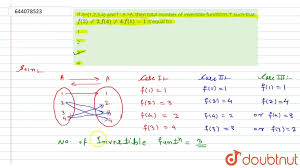 644078523
If A={1,2,3,4} and f : A→A, then total number of invertible functions 'f' such that
f(2) ≠ 2, f(4) ≠ 4, f(1) = 1 is equal to
Soln:
A A Case I:- Case II:- Case III:-
1 1 f(1) = 1 f(1) = 1 f(1) = 1
2 2 f(2) = 3 f(2) = 4 f(2) = 4
3 f(4) = 2 f(4) = 2 or f(4) = 3
4 f(3) = 4 f(3) = 3 or f(3) = 2
No. of Invertible functn = 3
doubtnut